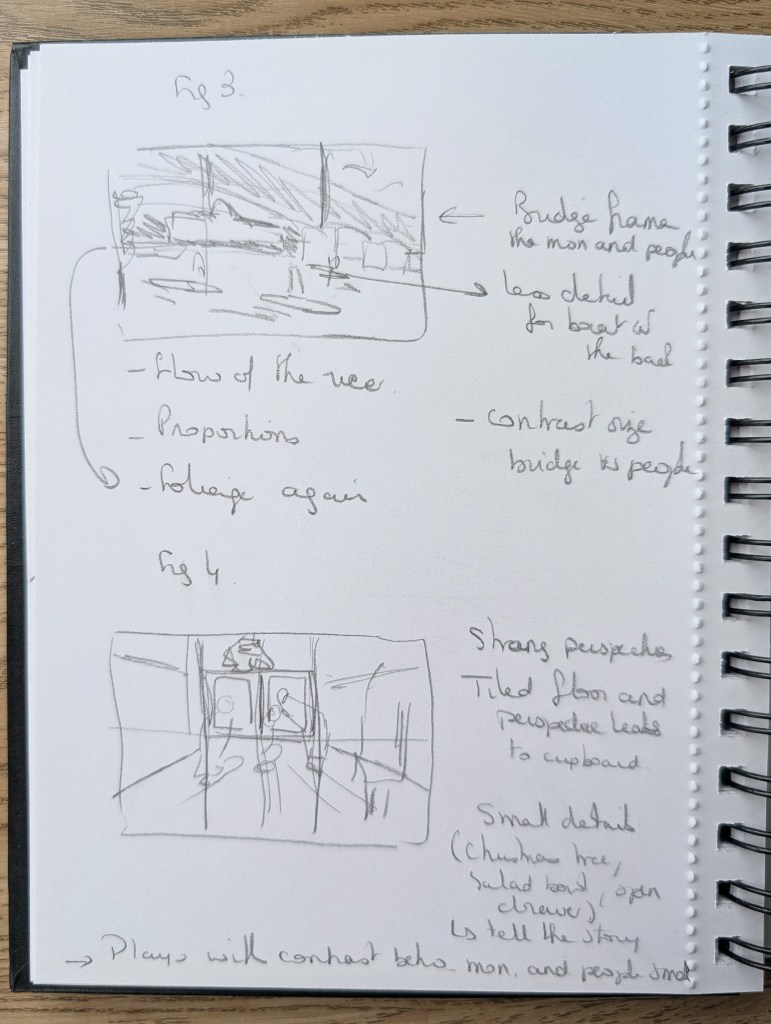 Fig 3.
Bridge frame
the mon and people
Less detail
for boat at
the back
- Flow of the
- Proportions
- Contrast size
bridge vs people
- Foliage again
Fig 4
Strong perspective
Tiled floor and
perspective leads
to cupboard
Small details
(Christmas tree,
Salad bowl, open
drawer)
↳ tell the story
→ Plays with contrast mon, and people small